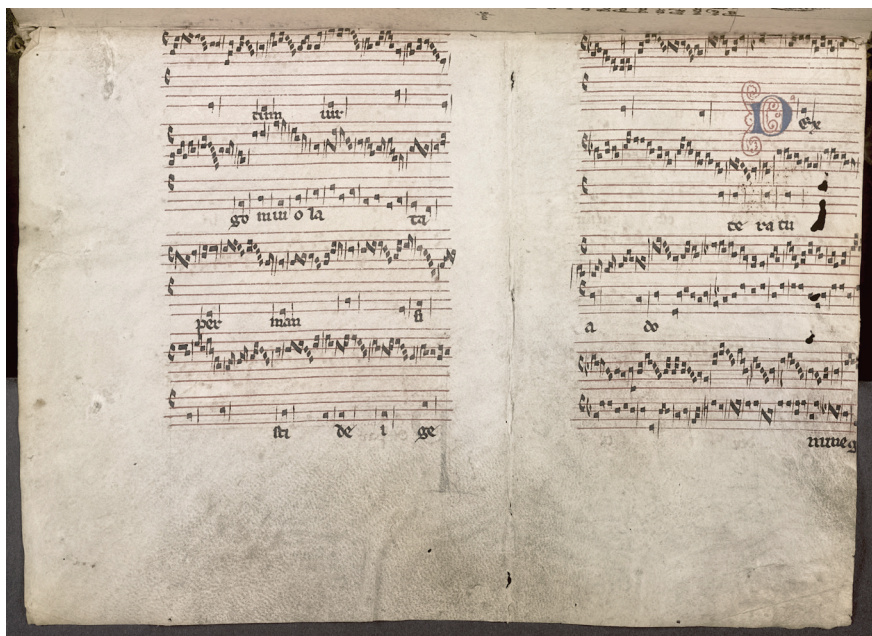 cum uir
go inui o la ta
per man si
sti de i ge
Dex
te ra tu
a do